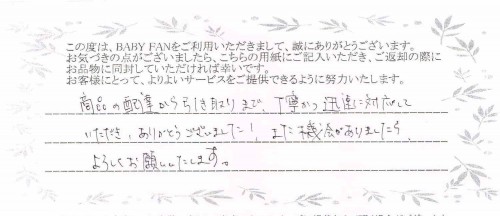 この度は、BABY FANをご利用いただきまして、誠にありがとうございます。
お気づきの点がございましたら、こちらの用紙にご記入いただき、ご返却の際に
お品物に同封していただければ幸いです。
お客様にとって、よりよいサービスをご提供できるように努力いたします。
商品の配達から引き取りまで、丁寧かつ迅速に対応して
いただき、ありがとうございました！またの機会がありましたら、
よろしくお願いいたします。